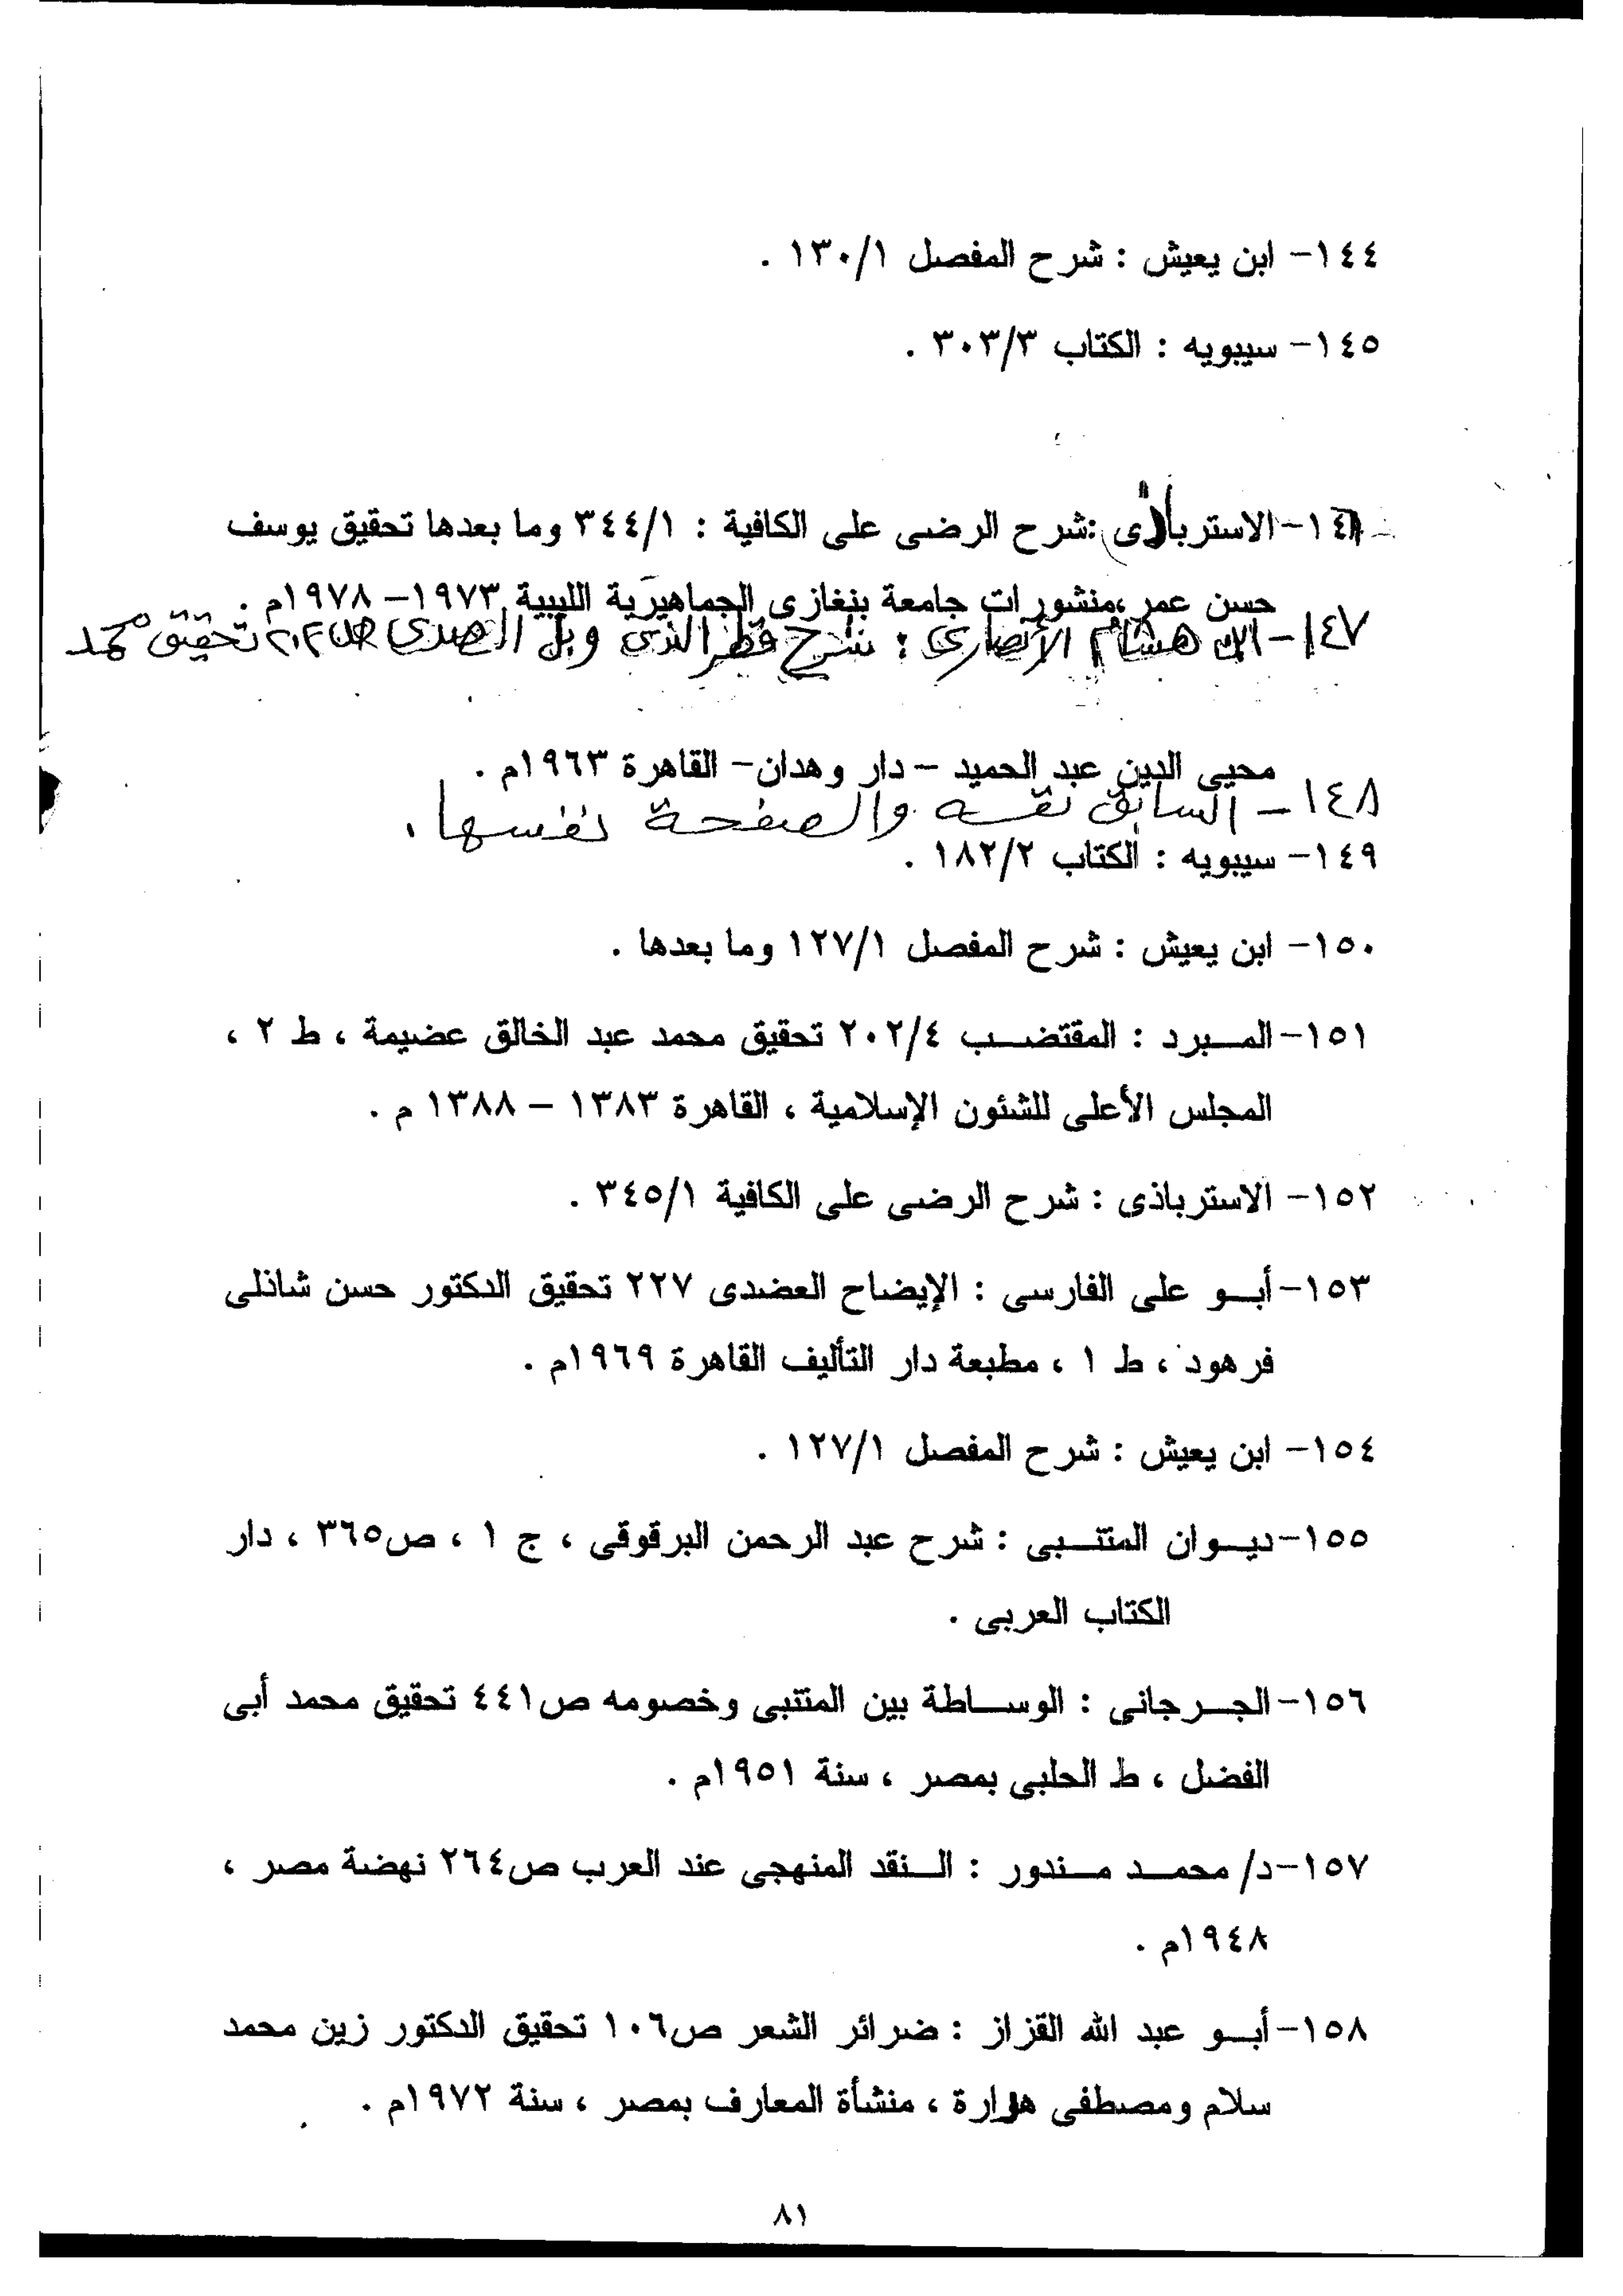 ١٤٤- ابن يعيش : شرح المفصل ١٣٠/١ .
١٤٥- سيبويه : الكتاب ٣٠٣/٣ .
١٤٦-الاسترباذى :شرح الرضى على الكافية : ٣٤٤/١ وما بعدها تحقيق يوسف
حسن عمر ،منشورات جامعة بنغازى الجماهيرية الليبية ١٩٧٣- ١٩٧٨م .
١٤٧-ابن هشام الأنصارى : شرح قطر الندى وبل الصدى ص٢٠٢ تحقيق محمد
محيى الدين عبد الحميد - دار وهدان- القاهرة ١٩٦٣م .
١٤٨- السابق نفسه والصفحة نفسها .
١٤٩- سيبويه : الكتاب ١٨٢/٢ .
١٥٠- ابن يعيش : شرح المفصل ١٢٧/١ وما بعدها .
١٥١-المــبرد : المقتضــب ٢٠٢/٤ تحقيق محمد عبد الخالق عضيمة ، ط ٢ ،
المجلس الأعلى للشئون الإسلامية ، القاهرة ١٣٨٣ - ١٣٨٨ م .
١٥٢- الاسترباذى : شرح الرضى على الكافية ٣٤٥/١ .
١٥٣-أبــو على الفارسى : الإيضاح العضدى ٢٢٧ تحقيق الدكتور حسن شاذلى
فرهود ، ط ١ ، مطبعة دار التأليف القاهرة ١٩٦٩م .
١٥٤- ابن يعيش : شرح المفصل ١٢٧/١ .
١٥٥-ديــوان المتنــبى : شرح عبد الرحمن البرقوقى ، ج ١ ، ص٣٦٥ ، دار
الكتاب العربى .
١٥٦-الجــرجانى : الوســاطة بين المتنبى وخصومه ص٤٤١ تحقيق محمد أبى
الفضل ، ط الحلبى بمصر ، سنة ١٩٥١م .
١٥٧-د/ محمــد مــندور : الــنقد المنهجى عند العرب ص٢٦٤ نهضة مصر ،
١٩٤٨م .
١٥٨-أبــو عبد الله القزاز : ضرائر الشعر ص١٠٦ تحقيق الدكتور زين محمد
سلام ومصطفى هدارة ، منشأة المعارف بمصر ، سنة ١٩٧٢م .
٨١